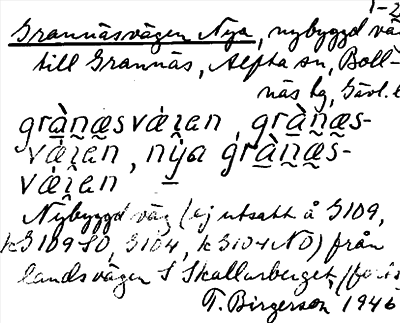 1-2
Grannäsvägen Nya, nybyggd vä
till Grannäs, Alfta sn, Boll-
näs tg, Gävl. l
grànæsvǽꞮen, grànæs-
vǽꞮen, nŷa grànæs-
vǽꞮen
Nybyggd väg (ej utsatt å G109,
kG109SO, G104, kG104NO) från
landsvägen S Skallarberget, (forts
T. Birgerson 1946